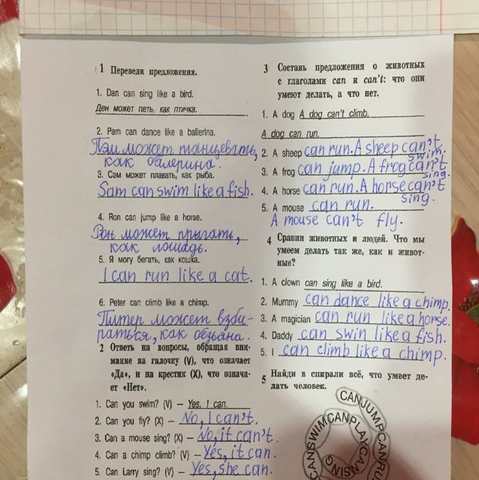 1 Переведи предложения.
1. Dan can sing like a bird.
Ден может петь, как птичка.
2. Pam can dance like a ballerina.
Пэм может танцевать,
как балерина.
3. Сам может плавать, как рыба.
Sam can swim like a fish.
4. Ron can jump like a horse.
Рон может прыгать,
как лошадь.
5. Я могу бегать, как кошка.
I can run like a cat.
6. Peter can climb like a chimp.
Питер может взби-
раться, как обезьяна.
2 Ответь на вопросы, обращая вни-
мание на галочку (V), что означает
«Да», и на крестик (X), что означа-
ет «Нет».
1. Can you swim? (V) – Yes, I can.
2. Can you fly? (X) – No, I can't.
3. Can a mouse sing? (X) – No, it can't.
4. Can a chimp climb? (V) – Yes, it can.
5. Can Larry sing? (V) – Yes, she can.
3 Составь предложения о животных
с глаголами can и can't: что они
умеют делать, а что нет.
1. A dog A dog can't climb.
A dog can run.
2. A sheep can run. A sheep can't
swim.
3. A frog can jump. A frog can't
sing.
4. A horse can run. A horse can't
sing.
5. A mouse can run.
A mouse can't fly.
4 Сравни животных и людей. Что мы
умеем делать так же, как и живот-
ные?
1. A clown can sing like a bird.
2. Mummy can dance like a chimp.
3. A magician can run like a horse.
4. Daddy can swin like a fish.
5. I can climb like a chimp.
5 Найди в спирали всё, что умеет де-
лать человек.
CANJUMPCANRUN
CANSWIMCANPLAYCANSING